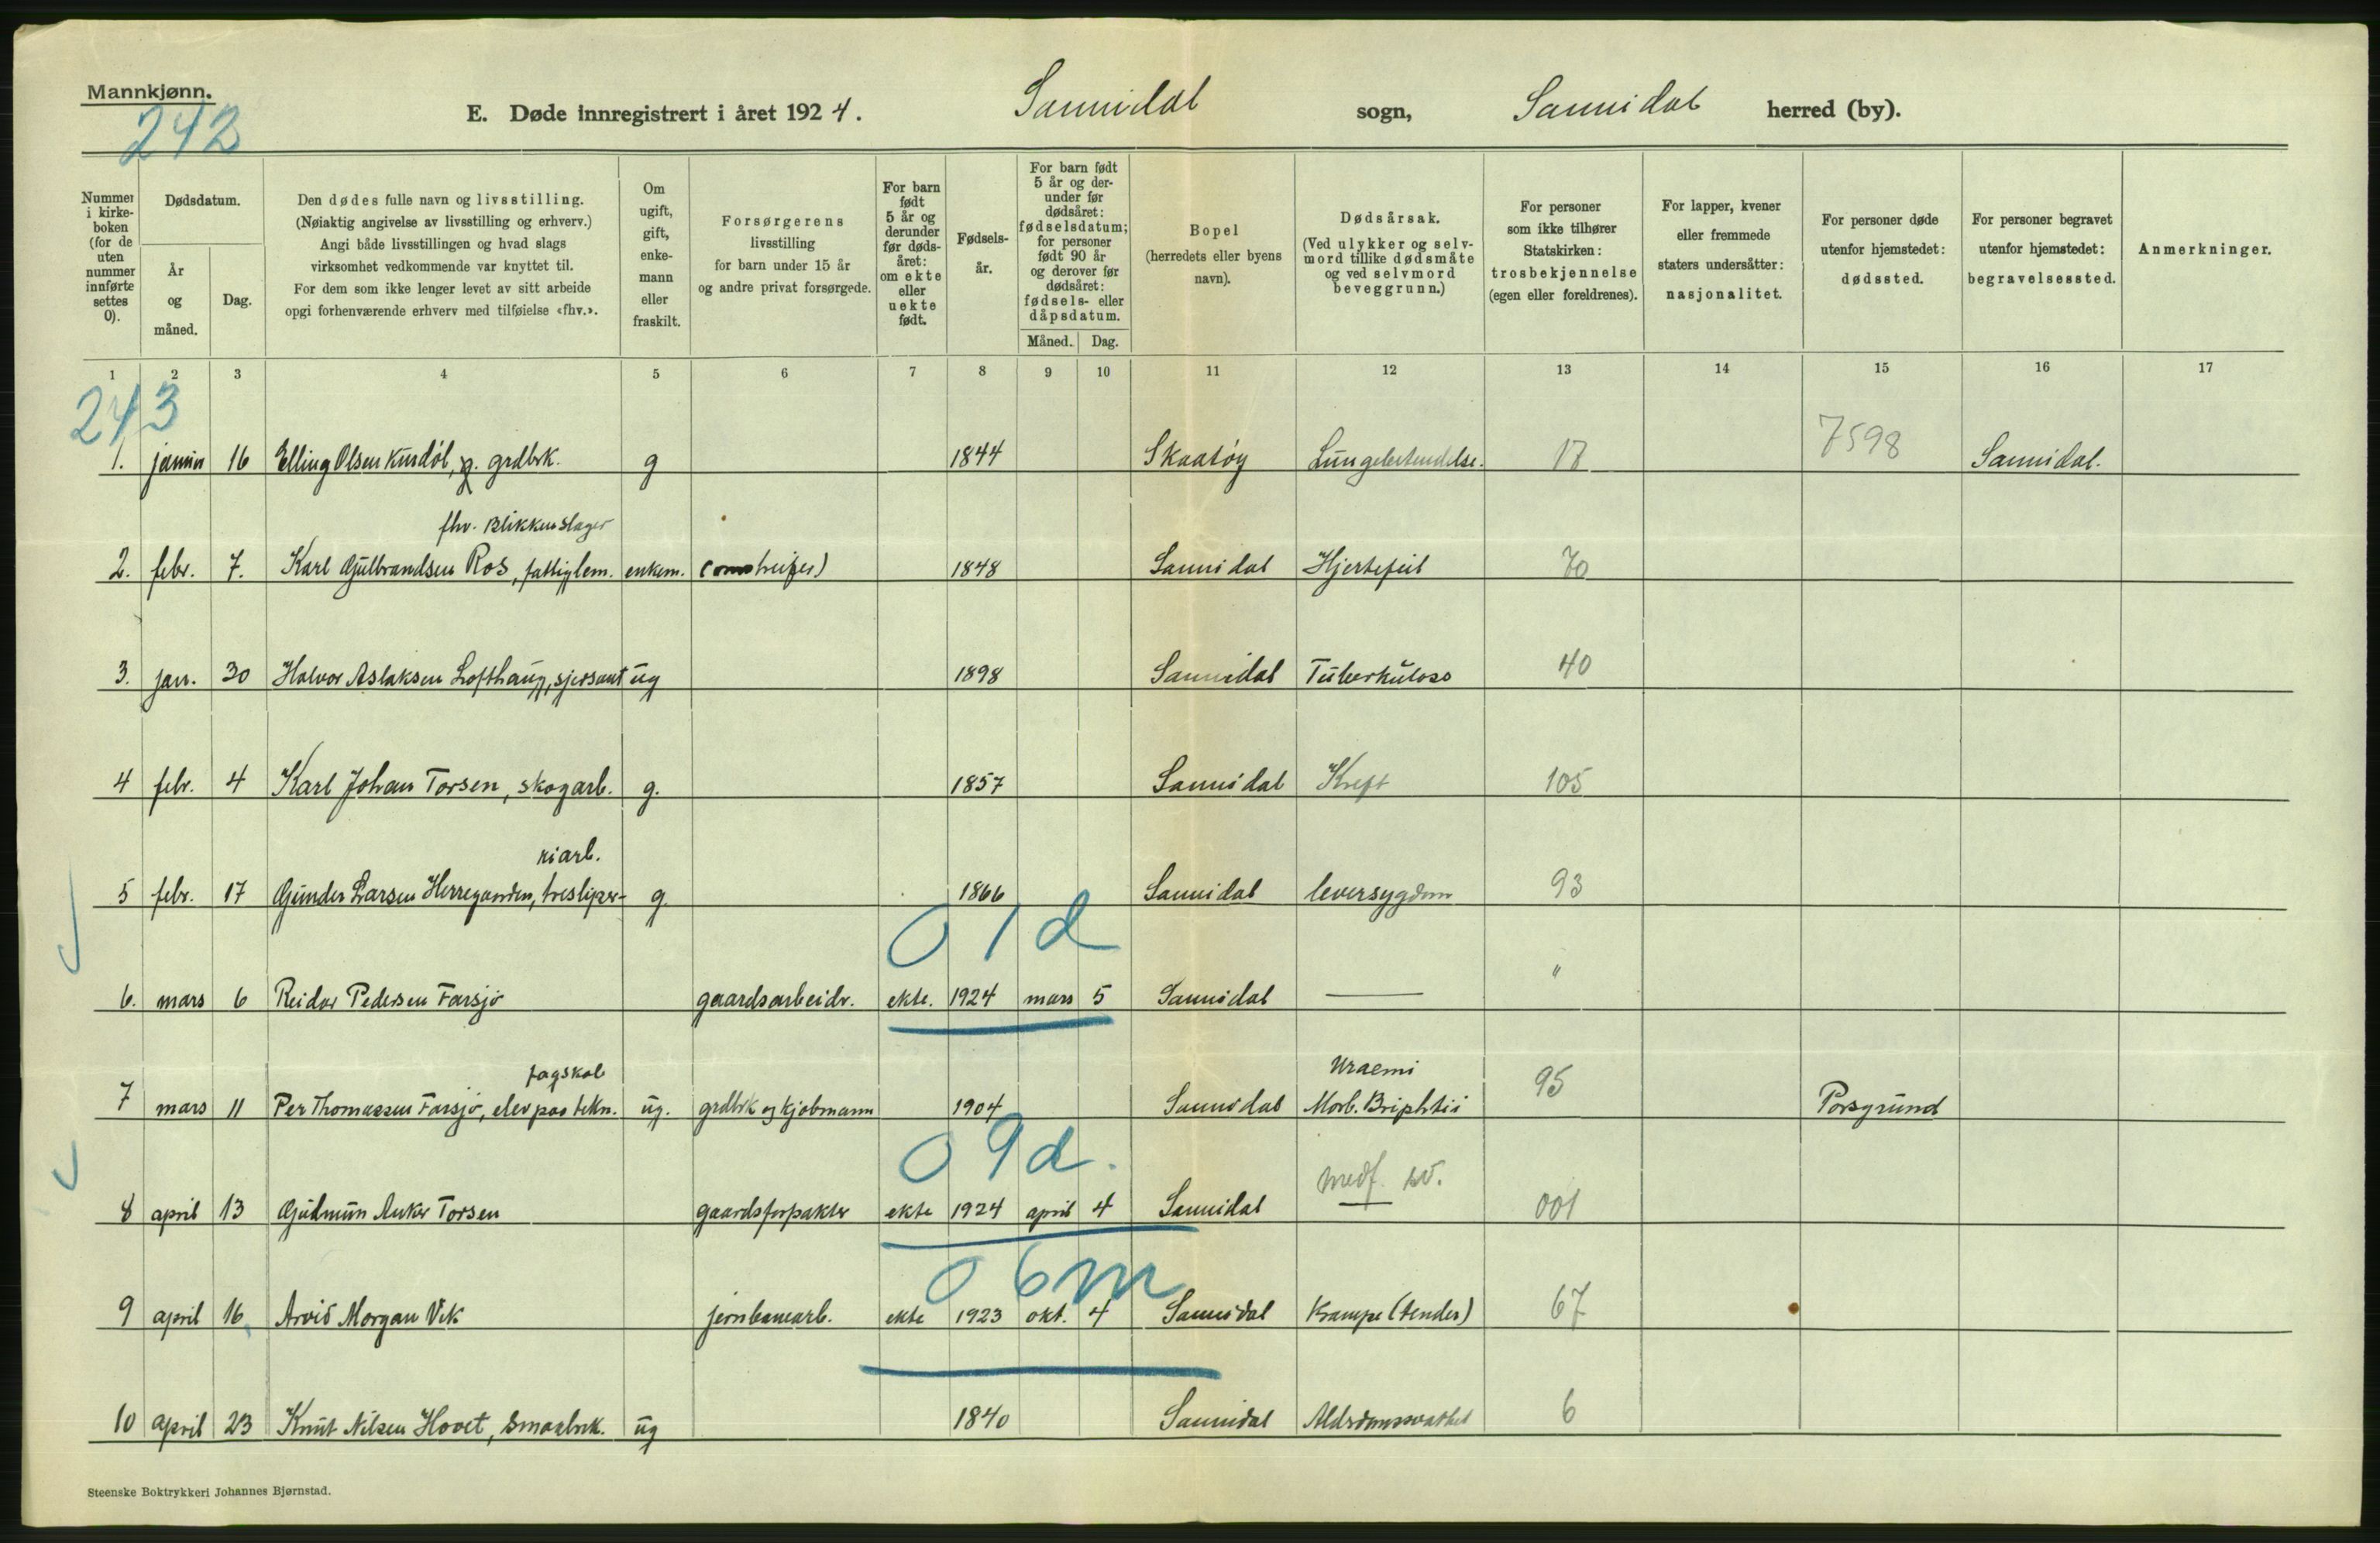 Mannkjønn.
242
E. Døde innregistrert i året 1924. Sannidal sogn, Sannidal herred (by).
Nummer i kirkeboken (for de uten nummer innførte settes 0).
Dødsdatum.
År og måned.
Dag.
Den dødes fulle navn og livsstilling.
(Nøiaktig angivelse av livsstilling og erhverv.)
Angi både livsstillingen og hvad slags
virksomhet vedkommende var knyttet til.
For dem som ikke lenger levet av sitt arbeide
opgi forhenværende erhverv med tilføielse «fhv.».
Om ugift, gift, enkemann eller fraskilt.
Forsørgerens
livsstilling
for barn under 15 år
og andre privat forsørgede.
For barn født 5 år og derunder før dødsåret: om ekte eller uekte født.
Fødselsår.
For barn født 5 år og derunder før dødsåret: fødselsdatum; for personer født 90 år og derover før dødsåret: fødsels- eller dåpsdatum.
Måned. Dag.
Bopel
(herredets eller byens
navn).
Dødsårsak.
(Ved ulykker og selvmord tillike dødsmåte og ved selvmord beveggrunn.)
For personer
som ikke tilhører
Statskirken:
trosbekjennelse
(egen eller foreldrenes).
For lapper, kvener
eller fremmede
staters undersåtter:
nasjonalitet.
For personer døde
utenfor hjemstedet:
dødssted.
For personer begravet
utenfor hjemstedet:
begravelsessted.
Anmerkninger.
1 2 3 4 5 6 7 8 9 10 11 12 13 14 15 16 17
243
1. 16 Elling Olsen Kurdöl, g. grdbrk. g 1844 Skaatøy Lungebetendelse. 17 7598 Sannidal.
fhv. Blikkenslager
2. febr. 7. Karl Gulbrandsen Ros, fattiglem. enkem. 1848 Sannidal Hjertefeil 70
3. jan. 30 Halvor Aslaksen Lofthaug, sjersant ug 1898 Sannidal Tuberkulose 40
4 febr. 4 Karl Johan Torsen, skogarb. g. 1857 Sannidal Kreft 105
riarb.
5 febr. 17 Gunder Larsen Herregarden, tresliper- g. 1866 Sannidal leversygdom 93
0 1 d
6. mars 6 Reidar Pedersen Farsjø gaardsarbeidr. ekte. 1924 mars 5 Sannidal — "
fagskole Uraemi
7 mars 11 Per Thomassen Farsjø, elev paa tekn. ug. grdbrk og kjøbmann 1904 Sannidal Morb. Brightii 95 Porsgrund
0 9 d. medf. sv.
8 april 13 Gudmun Anker Torsen gaardsforpakter ekte 1924 april 4 Sannidal — 001
0 6 m
9 april 16 Arvid Morgan Vik jernbanearb. ekte 1923 okt. 4 Sannidal Krampe (tender) 67
10 april 23 Knut Nilsen Hovet, smaabrk. ug 1840 Sannidal Alderdomssvakhet 6
Steenske Boktrykkeri Johannes Bjørnstad.